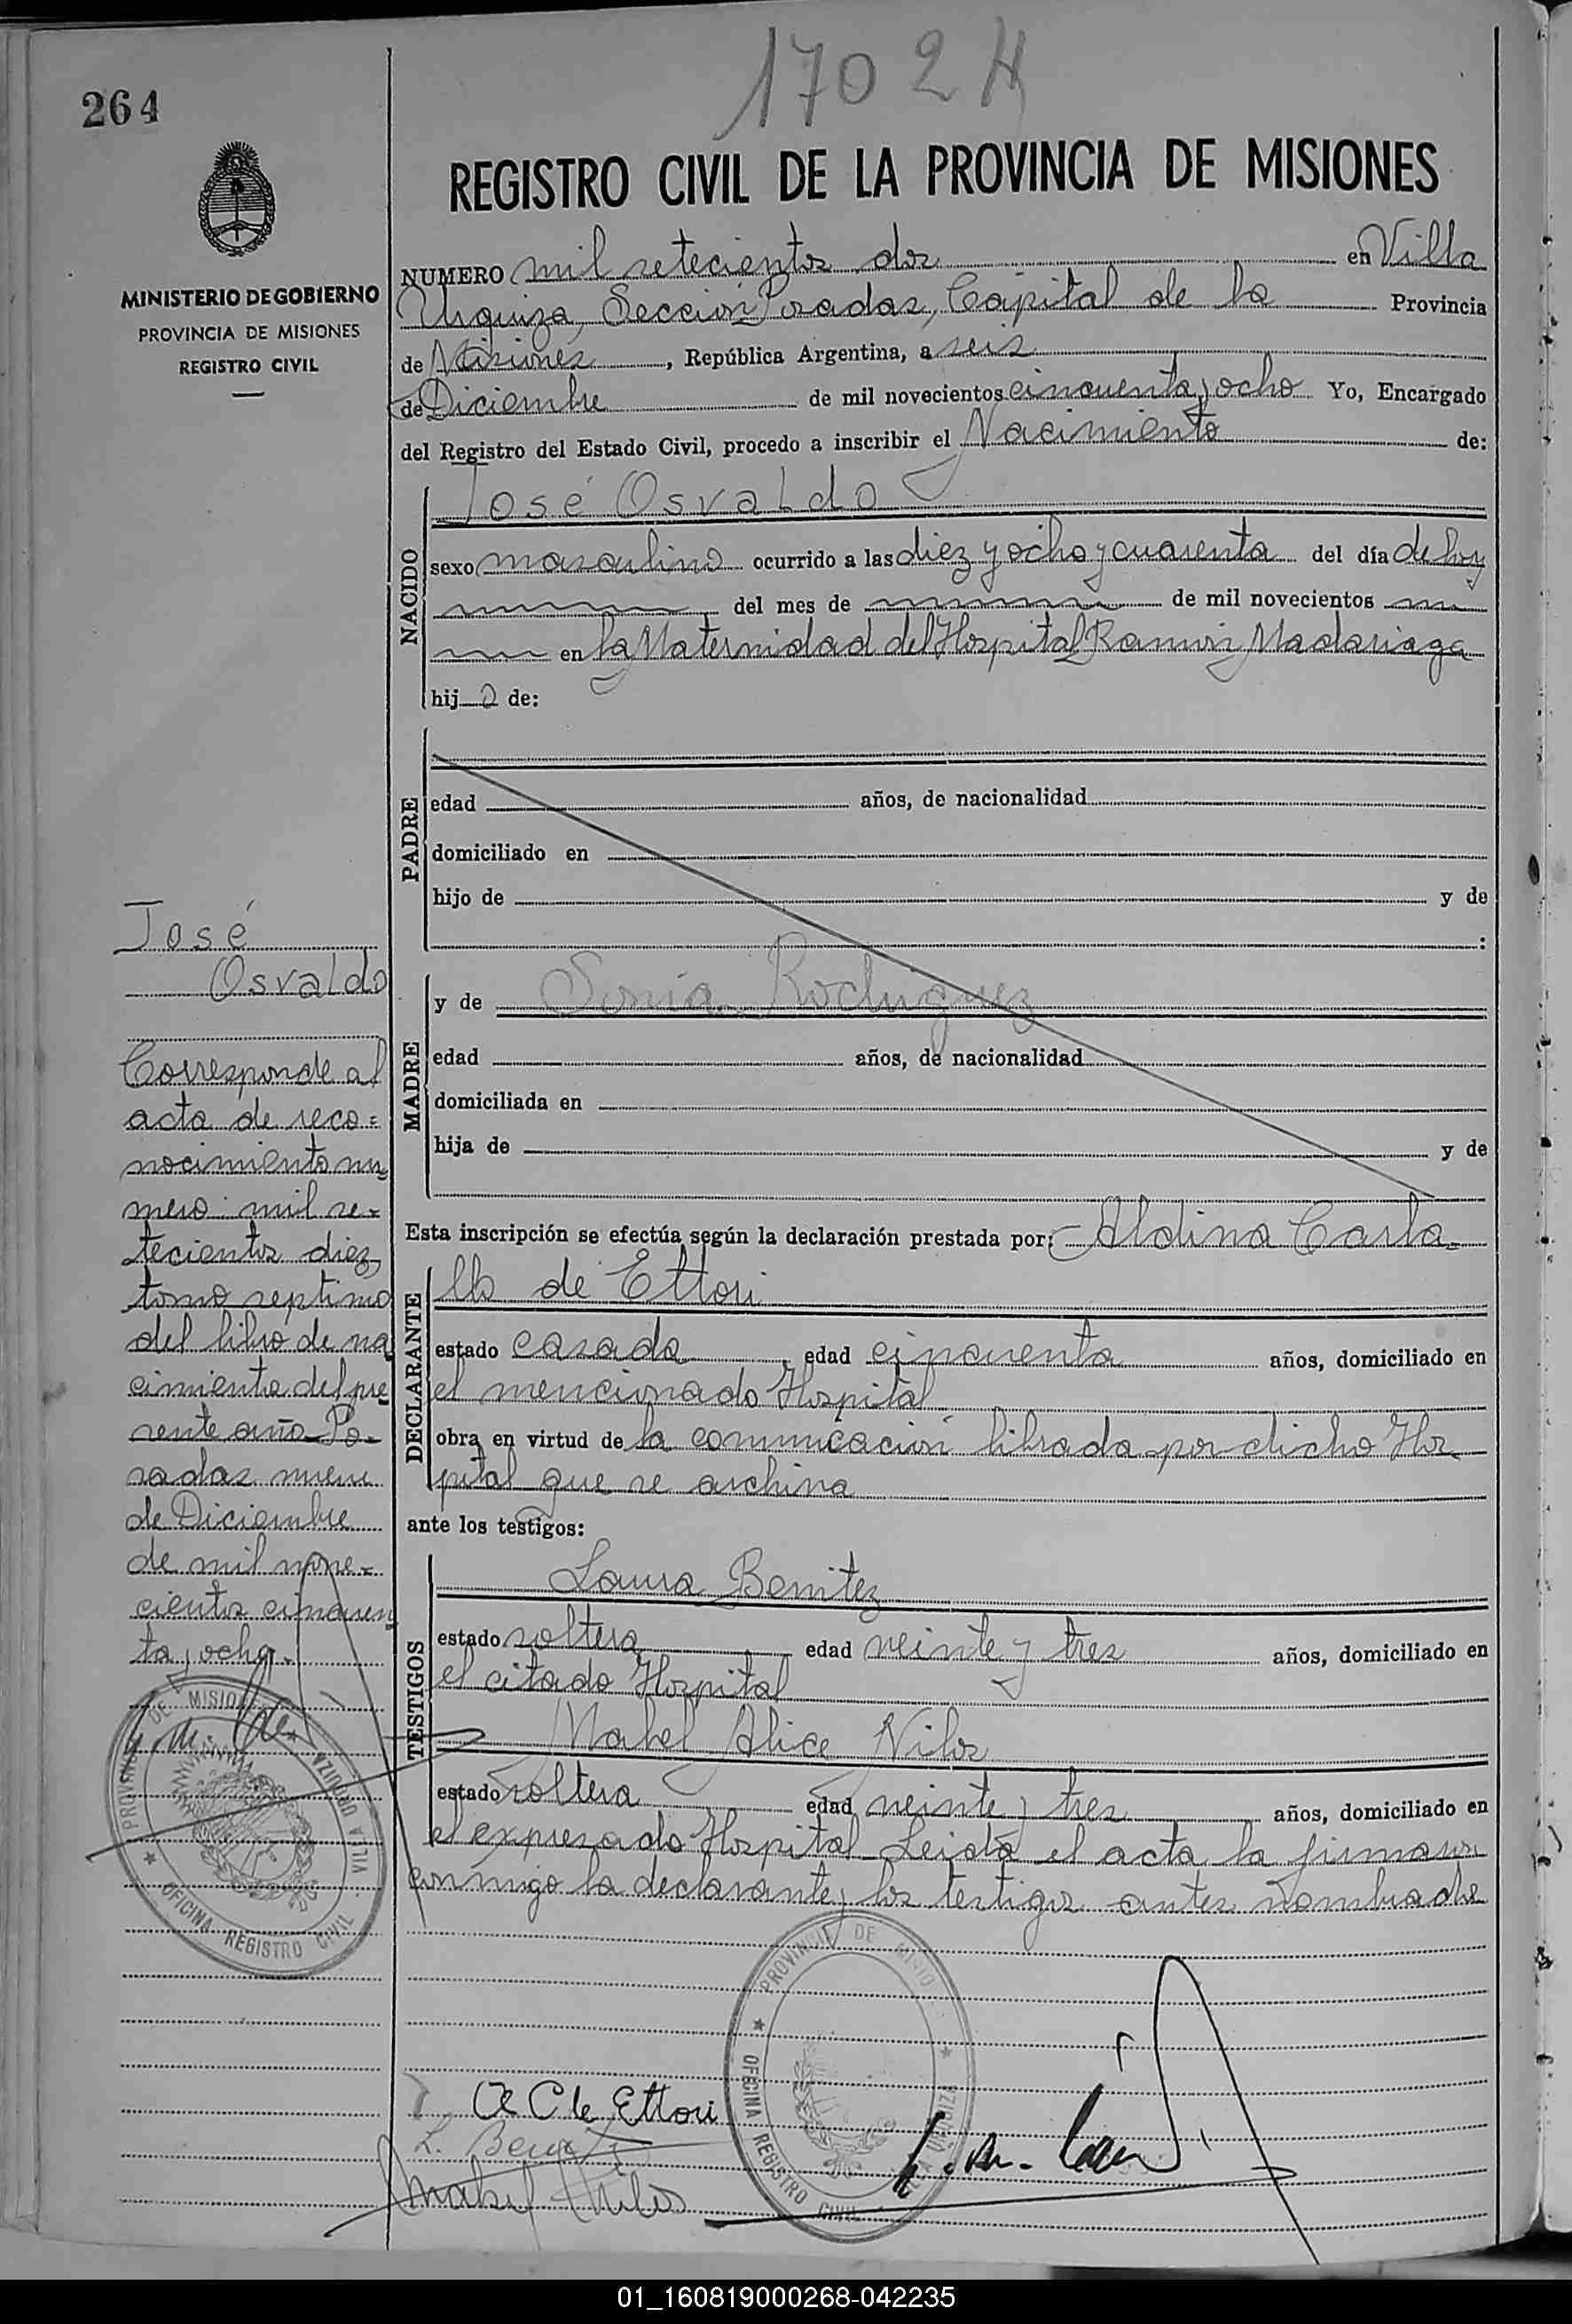 1702 H
264
REGISTRO CIVIL DE LA PROVINCIA DE MISIONES
MINISTERIO DE GOBIERNO
PROVINCIA DE MISIONES
REGISTRO CIVIL
NUMERO mil setecientos dos en Villa
Urquiza, Sección Posadas, Capital de la Provincia
de Misiones, República Argentina, a seis
de Diciembre de mil novecientos cincuenta y ocho Yo, Encargado
del Registro del Estado Civil, procedo a inscribir el Nacimiento de:
NACIDO
José Osvaldo
sexo masculino ocurrido a las diez y ocho y cuarenta del día de hoy
del mes de de mil novecientos
en la Maternidad del Hospital Ramón Madariaga
hijo de:
PADRE
edad años, de nacionalidad
domiciliado en
hijo de y de
:
MADRE
y de Sonia Rodriguez
edad años, de nacionalidad
domiciliada en
hija de y de
Esta inscripción se efectúa según la declaración prestada por: Aldina Carba-
DECLARANTE
llo de Ettori
estado casada, edad cincuenta años, domiciliado en
el mencionado Hospital
obra en virtud de la comunicación librada por dicho Hos
pital que se archiva
ante los testigos:
TESTIGOS
Laura Benitez
estado soltera edad veinte y tres años, domiciliado en
el citado Hospital
Mabel Alice Vilos
estado soltera edad veinte y tres años, domiciliado en
el expresado Hospital Leida el acta la firmaron
conmigo la declarante y los testigos antes nombrados
José
Osvaldo
Corresponde al
acta de reco=
nocimiento nu
mero mil se=
tecientos diez,
tomo septimo
del libro de na
cimiento del pre
sente año Po=
sadas nueve
de Diciembre
de mil nove=
cientos cincuen
ta y ocho.
PROVINCIA DE MISIONES
VILLA URQUIZA
OFICINA REGISTRO CIVIL
PROVINCIA DE MISIONES
VILLA URQUIZA
OFICINA REGISTRO CIVIL
A C de Ettori
L. Benitez
Mabel Vilos
01_160819000268-042235